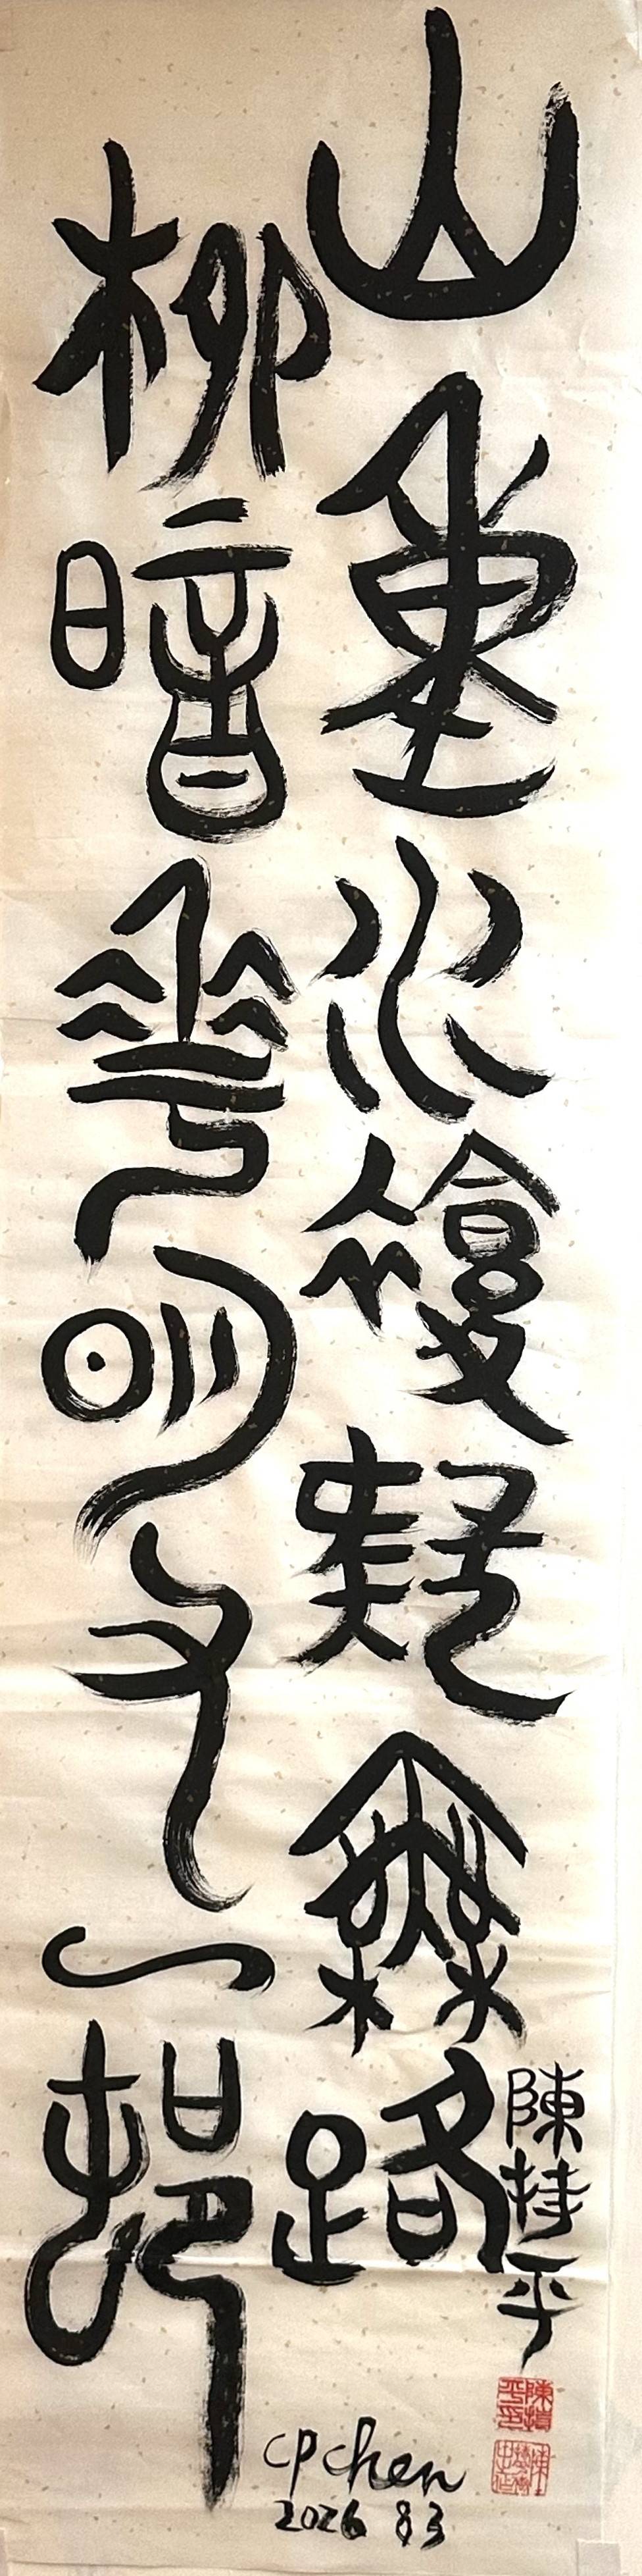 山重水複疑無路
柳暗花明又一邨
陳持平
CP Chen
2026 8 3